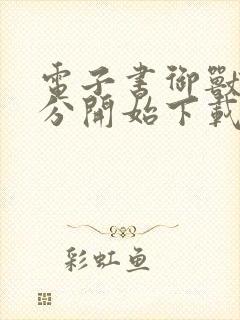 電子書御獸
分開始下載
彩虹鱼